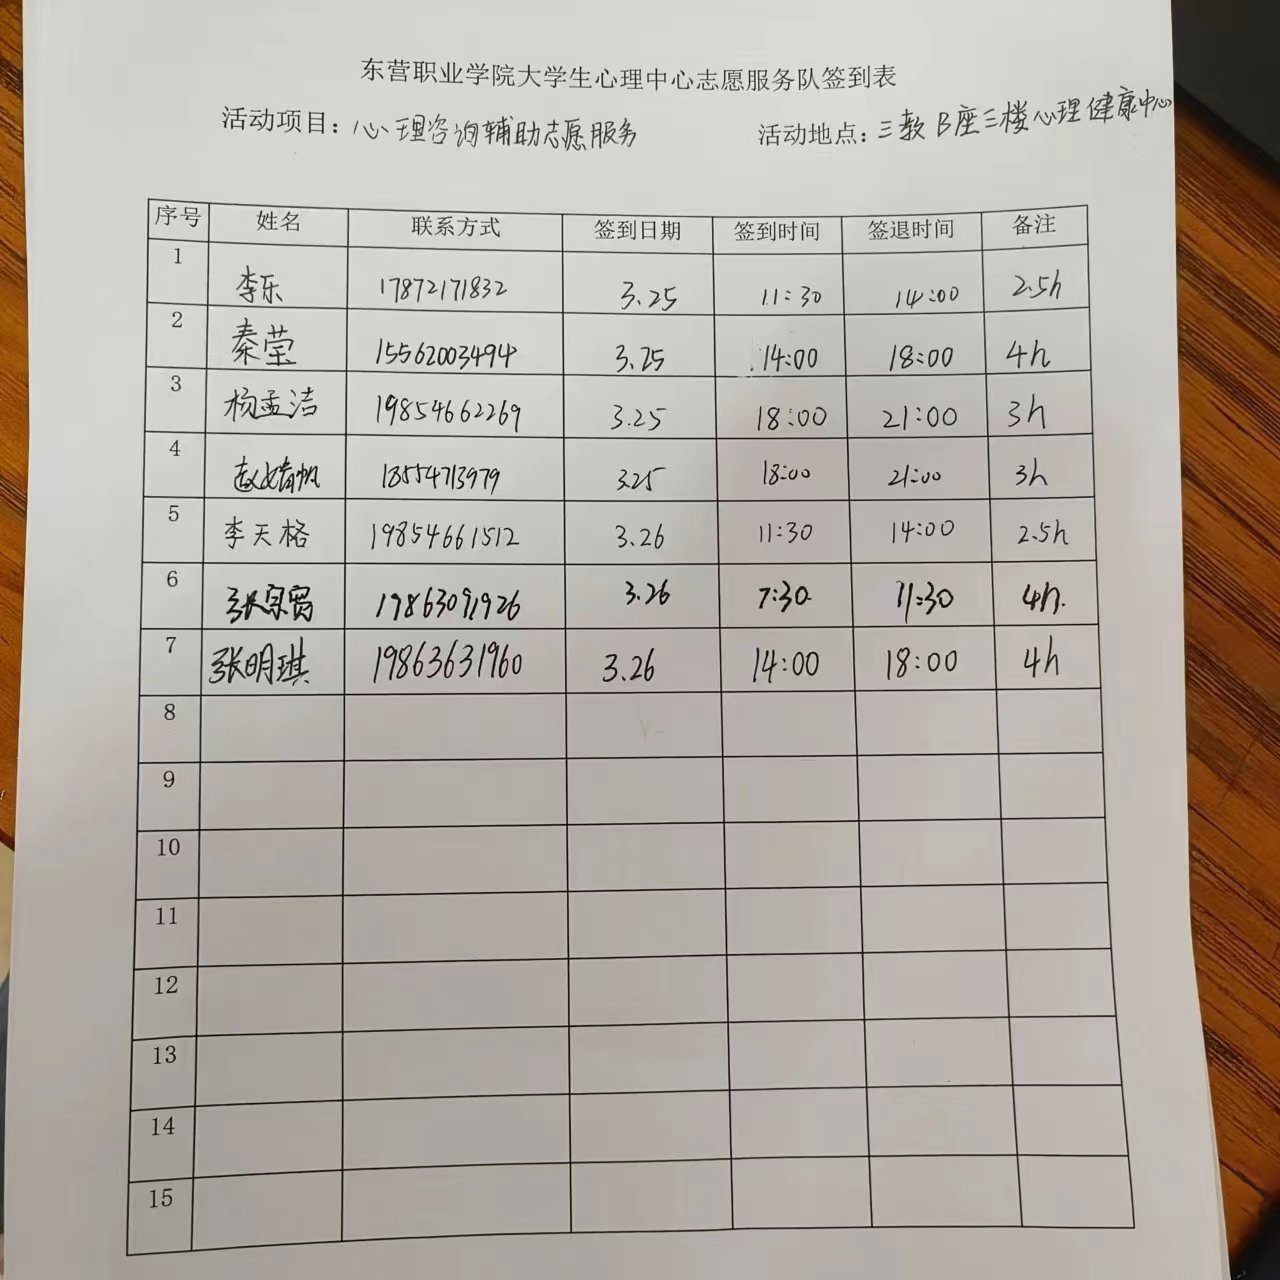 东营职业学院大学生心理中心志愿服务队签到表
活动项目：心理咨询辅助志愿服务 活动地点：三教B座三楼心理健康中心
序号 姓名 联系方式 签到日期 签到时间 签退时间 备注
1 李乐 17872171832 3.25 11:30 14:00 2.5h
2 秦莹 15562003494 3.25 14:00 18:00 4h
3 杨孟洁 19854662269 3.25 18:00 21:00 3h
4 赵婧帆 18554713979 3.25 18:00 21:00 3h
5 李天格 19854661512 3.26 11:30 14:00 2.5h
6 张宗贸 19863091926 3.26 7:30 11:30 4h.
7 张明琪 19863631960 3.26 14:00 18:00 4h
8
9
10
11
12
13
14
15